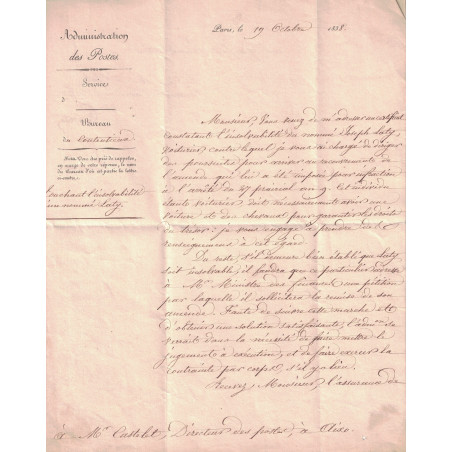 Administration
des Postes
Service
Bureau
du Contentieux
Nota. Vous êtes prié de rappeler,
en marge de votre réponse, le nom
du Bureau d'où est partie la lettre
touchant l'insolvabilité
du nommé Laty.
Paris, le 19 Octobre 1838.
Monsieur, Vous venez de m'adresser un certificat
constatant l'insolvabilité du nommé Joseph Laty,
voiturier contre lequel je vous ai chargé de diriger
des poursuites pour arriver au recouvrement de
l'amende qui lui a été imposée pour infraction
à l'arrêté du 27 prairial an 9. Cet individu
étant voiturier doit nécessairement avoir une
voiture et des chevaux pour garantir les droits
du trésor: je vous engage à prendre des
renseignements à cet égard.
Du reste, s'il demeure bien établi que Laty
soit insolvable, il faudra que ce particulier adresse
à Mr. le Ministre des finances une pétition
par laquelle il sollicitera la remise de son
amende. Faute de suivre cette marche et
d'obtenir une solution satisfaisante, l'admon. se
verrait dans la nécessité de faire mettre le
jugement à exécution, et de faire exercer la
contrainte par corps, s'il y a lieu.
Recevez, Monsieur, l'assurance de
à Mr. Castelet, Directeur des postes, à Aix.